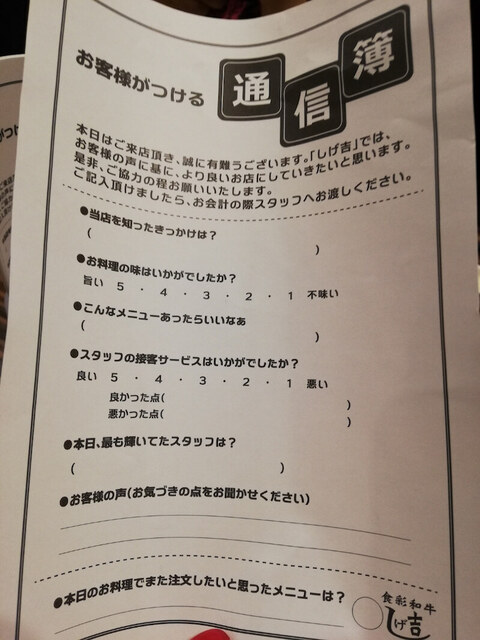 お客様がつける
通信簿
本日はご来店頂き、誠に有難うございます。「しげ吉」では、
お客様の声に基に、より良いお店にしていきたいと思います。
是非、ご協力の程お願いいたします。
ご記入頂けましたら、お会計の際スタッフへお渡しください。
●当店を知ったきっかけは？
( )
●お料理の味はいかがでしたか？
旨い 5 ・ 4 ・ 3 ・ 2 ・ 1 不味い
●こんなメニューあったらいいなあ
( )
●スタッフの接客サービスはいかがでしたか？
良い 5 ・ 4 ・ 3 ・ 2 ・ 1 悪い
良かった点( )
悪かった点( )
●本日、最も輝いてたスタッフは？
( )
●お客様の声(お気づきの点をお聞かせください)
●本日のお料理でまた注文したいと思ったメニューは？
食彩和牛
しげ吉